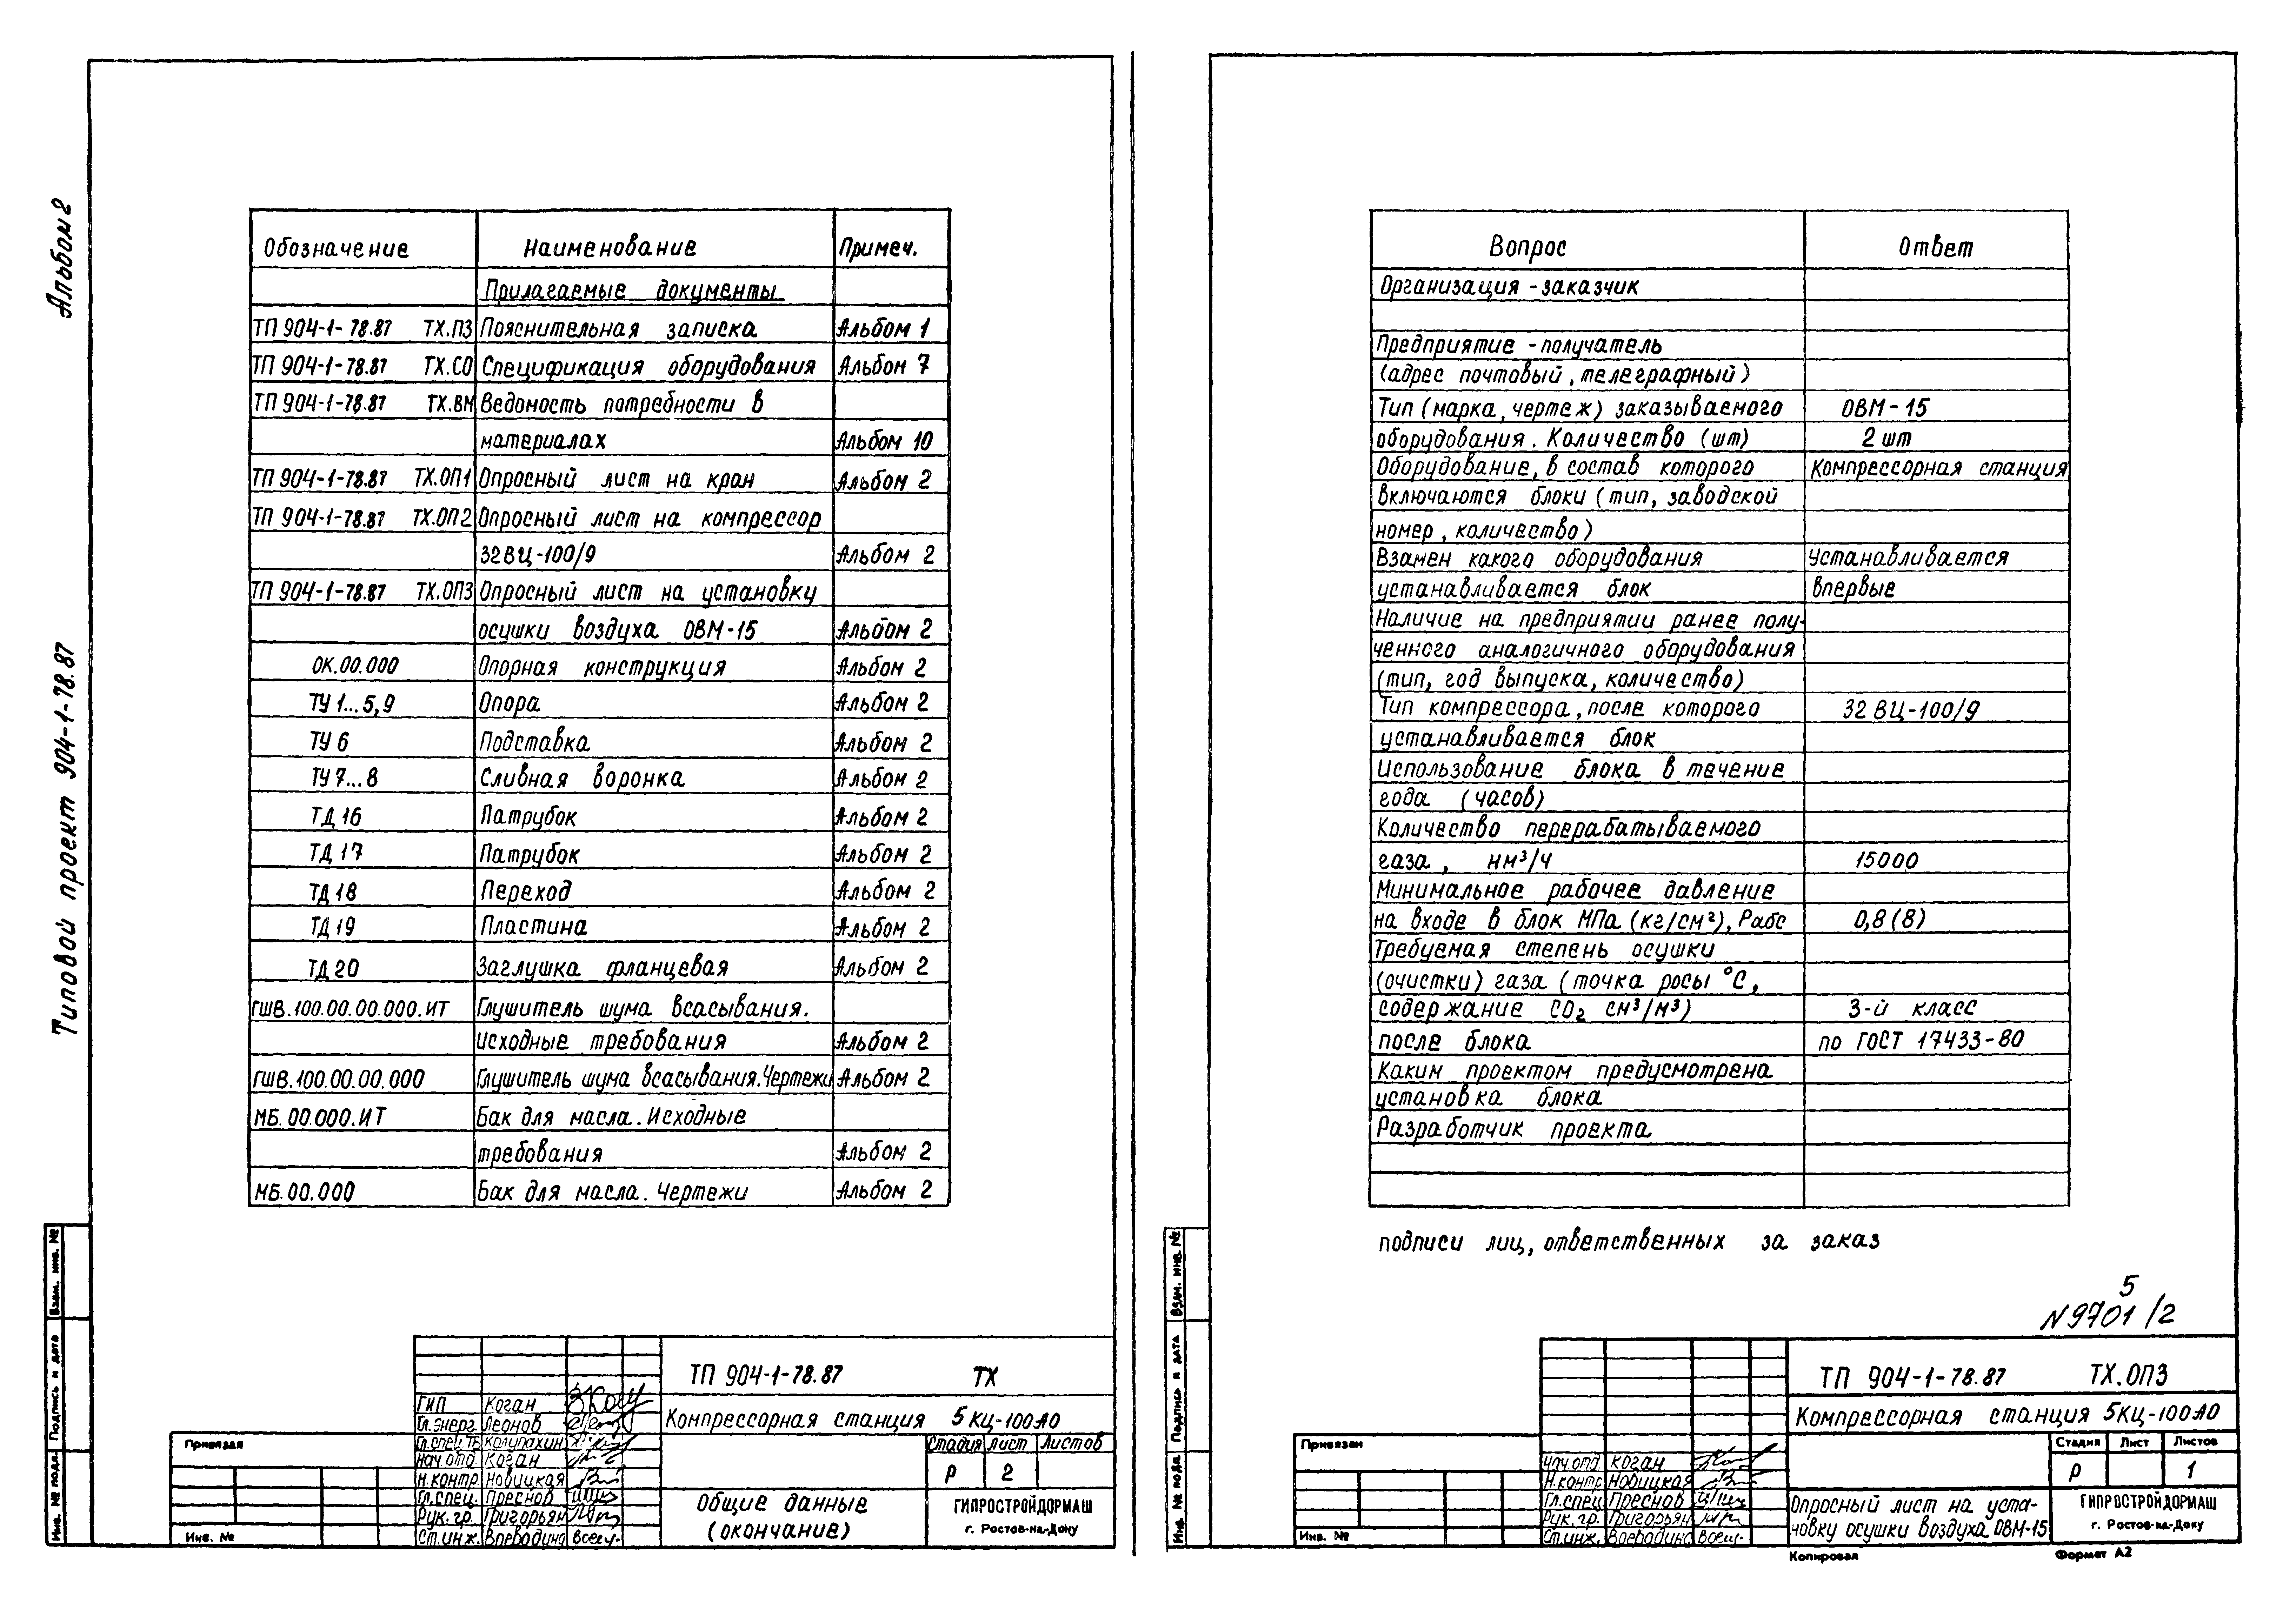 Альбом 2
Типовой проект 904-1-78.87
Обозначение Наименование Примеч.
Прилагаемые документы
ТП 904-1-78.87 ТХ.ПЗ Пояснительная записка Альбом 1
ТП 904-1-78.87 ТХ.СО Спецификация оборудования Альбом 7
ТП 904-1-78.87 ТХ.ВМ Ведомость потребности в
материалах Альбом 10
ТП 904-1-78.87 ТХ.ОП1 Опросный лист на кран Альбом 2
ТП 904-1-78.87 ТХ.ОП2 Опросный лист на компрессор
32ВЦ-100/9 Альбом 2
ТП 904-1-78.87 ТХ.ОП3 Опросный лист на установку
осушки воздуха ОВМ-15 Альбом 2
ОК.00.000 Опорная конструкция Альбом 2
ТУ 1...5,9 Опора Альбом 2
ТУ 6 Подставка Альбом 2
ТУ 7...8 Сливная воронка Альбом 2
ТД 16 Патрубок Альбом 2
ТД 17 Патрубок Альбом 2
ТД 18 Переход Альбом 2
ТД 19 Пластина Альбом 2
ТД 20 Заглушка фланцевая Альбом 2
ГШВ.100.00.00.000.ИТ Глушитель шума всасывания.
Исходные требования Альбом 2
ГШВ.100.00.00.000 Глушитель шума всасывания.Чертежи Альбом 2
МБ.00.000.ИТ Бак для масла. Исходные
требования Альбом 2
МБ.00.000 Бак для масла. Чертежи Альбом 2
Взам. инв. №
Подпись и дата
Инв. № подл.
Привязан
Инв. №
ГИП Коган
Гл.энерг. Леонов
Гл.спец.ТБ Колупахин
Нач.отд. Коган
Н.контр. Новицкая
Гл.спец. Преснов
Рук.гр. Григорьян
Ст.инж. Воеводина
ТП 904-1-78.87 ТХ
Компрессорная станция 5КЦ-100А0
Стадия лист листов
Р 2
Общие данные
(окончание)
ГИПРОСТРОЙДОРМАШ
г. Ростов-на-Дону
Вопрос Ответ
Организация - заказчик
Предприятие - получатель
(адрес почтовый, телеграфный)
Тип (марка, чертеж) заказываемого ОВМ-15
оборудования. Количество (шт) 2 шт
Оборудование, в состав которого Компрессорная станция
включаются блоки (тип, заводской
номер, количество)
Взамен какого оборудования Устанавливается
устанавливается блок впервые
Наличие на предприятии ранее полу-
ченного аналогичного оборудования
(тип, год выпуска, количество)
Тип компрессора, после которого 32 ВЦ-100/9
устанавливается блок
Использование блока в течение
года (часов)
Количество перерабатываемого
газа, нм³/ч 15000
Минимальное рабочее давление
на входе в блок МПа (кг/см²), Рабс 0,8 (8)
Требуемая степень осушки
(очистки) газа (точка росы °С,
содержание СО₂ см³/м³) 3-й класс
после блока по ГОСТ 17433-80
Каким проектом предусмотрена
установка блока
Разработчик проекта
подписи лиц, ответственных за заказ
5
N9701/2
Взам. инв. №
Подпись и дата
Инв. № подл.
Привязан
Инв. №
Нач.отд. Коган
Н.контр. Новицкая
Гл.спец. Преснов
Рук.гр. Григорьян
Ст.инж. Воеводина
ТП 904-1-78.87 ТХ.ОП3
Компрессорная станция 5КЦ-100А0
Стадия Лист Листов
Р 1
Опросный лист на уста-
новку осушки воздуха ОВМ-15
ГИПРОСТРОЙДОРМАШ
г. Ростов-на-Дону
Копировал Формат А2